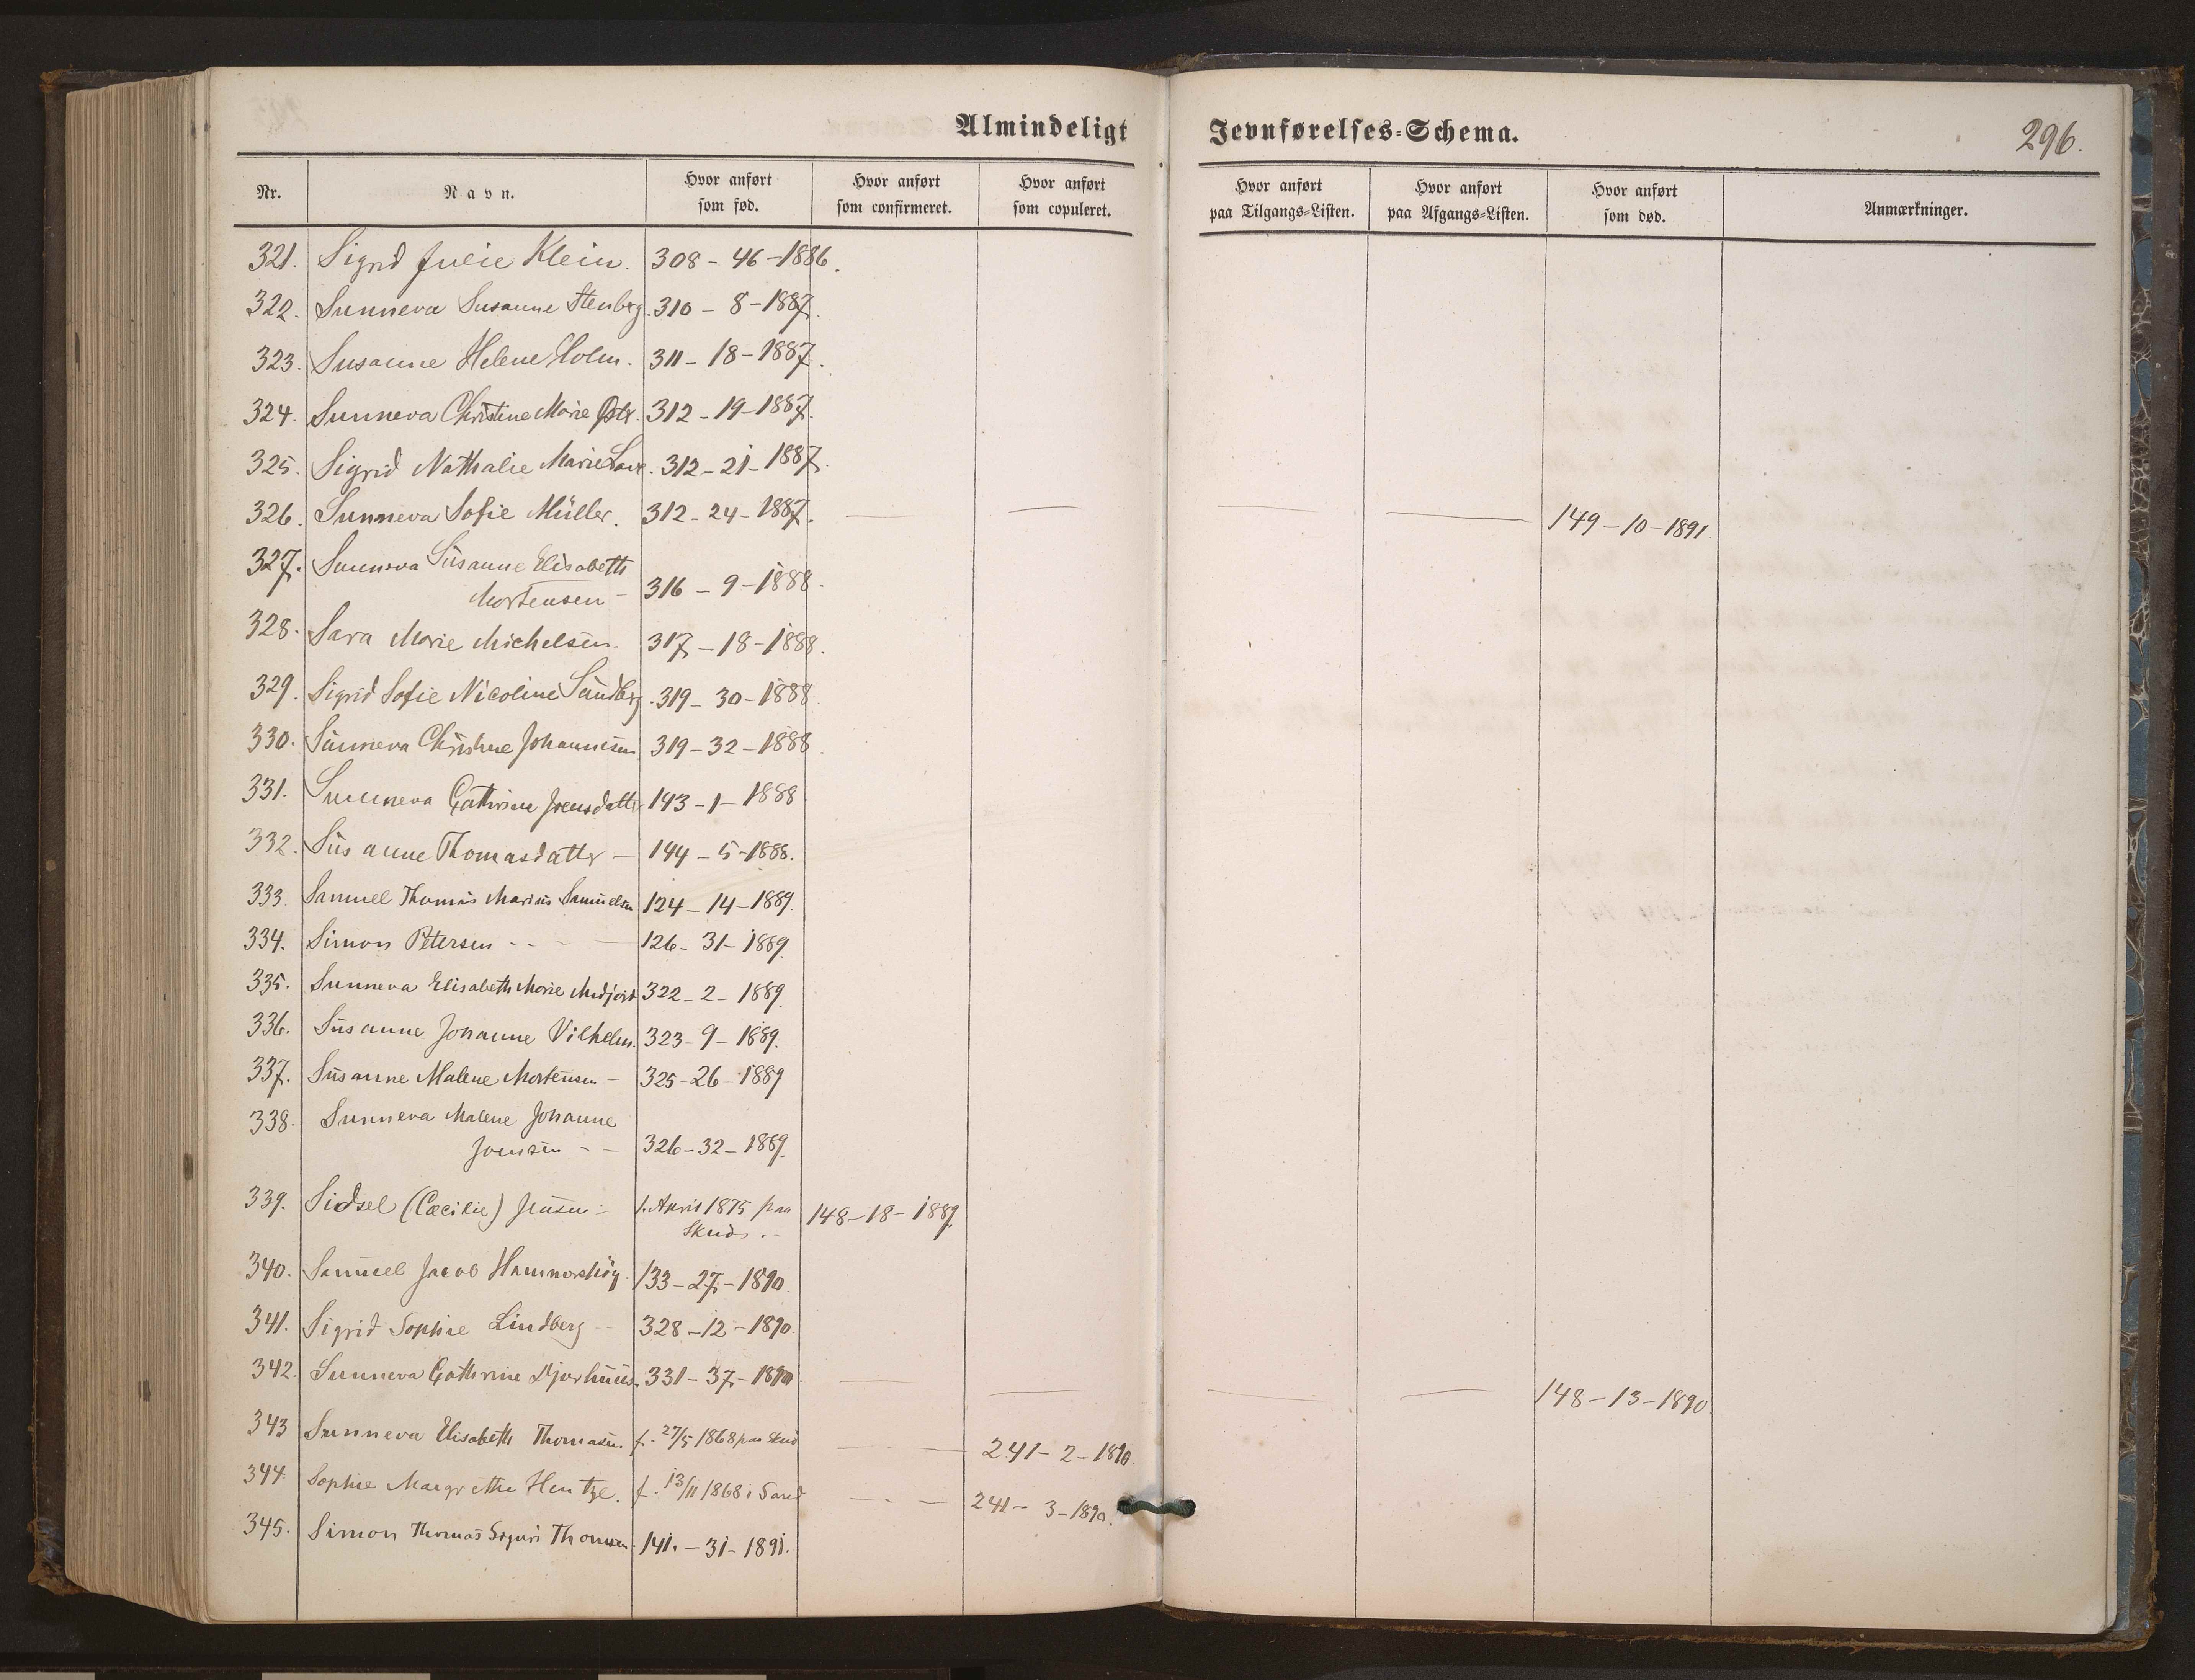 Almindeligt Jevnførelses-Schema. 296.
Nr. Navn. Hvor anført som fød. Hvor anført som confirmeret. Hvor anført som copuleret. Hvor anført paa Tilgangs-Listen. Hvor anført paa Afgangs-Listen. Hvor anført som død. Anmærkninger.
321. Sigrid Julie Klein. 308-46-1886.
322. Sunneva Susanne Stenberg. 310-8-1887.
323. Susanne Helene Holm. 311-18-1887.
324. Sunneva Christine Marie 312-19-1887.
325. Sigrid Nathalie Marie 312-21-1887.
326. Sunneva Sofie Müller. 312-24-1887. — — — — 149-10-1891.
327. Sunneva Susanne Elisabeth
Mortensen - 316-9-1888.
328. Sara Marie Michelsen. 317-18-1888.
329. Sigrid Sofie Nicoline Sandberg. 319-30-1888
330. Sunneva Christine Johannesen 319-32-1888.
331. Sunneva Cathrine Joensdatter 143-1-1888
332. Susanne Thomasdatter - 144-5-1888.
333. Samuel Thomas Marius Samuelsen 124-14-1889.
334. Simon Petersen - - - 126-31-1889.
335. Sunneva Elisabeth Marie Midjord 322-2-1889.
336. Susanne Johanne Vilhelm. 323-9-1889.
337. Susanne Malene Mortensen - 325-26-1889
338. Sunneva Malene Johanne
Joensen - - 326-32-1889.
339. Sidsel (Cæcilie) Jensen - 1. April 1875 paa 148-18-1889
Skud. -
340. Samuel Jacob Hammershög. 133-27-1890.
341. Sigrid Sophie Lindberg - 328-12-1890
342. Sunneva Cathrine Djurhuus. 331-37-1890 — — — — 148-13-1890.
343 Sunneva Elisabeth Thomasen. f. 27/5 1868 paa Skud — 241-2-1890.
344. Sophie Margrethe Hentze. f. 13/11 1868 i Sand — 241-3-1890.
345. Simon Thomas Thomsen 141.-31-1891.